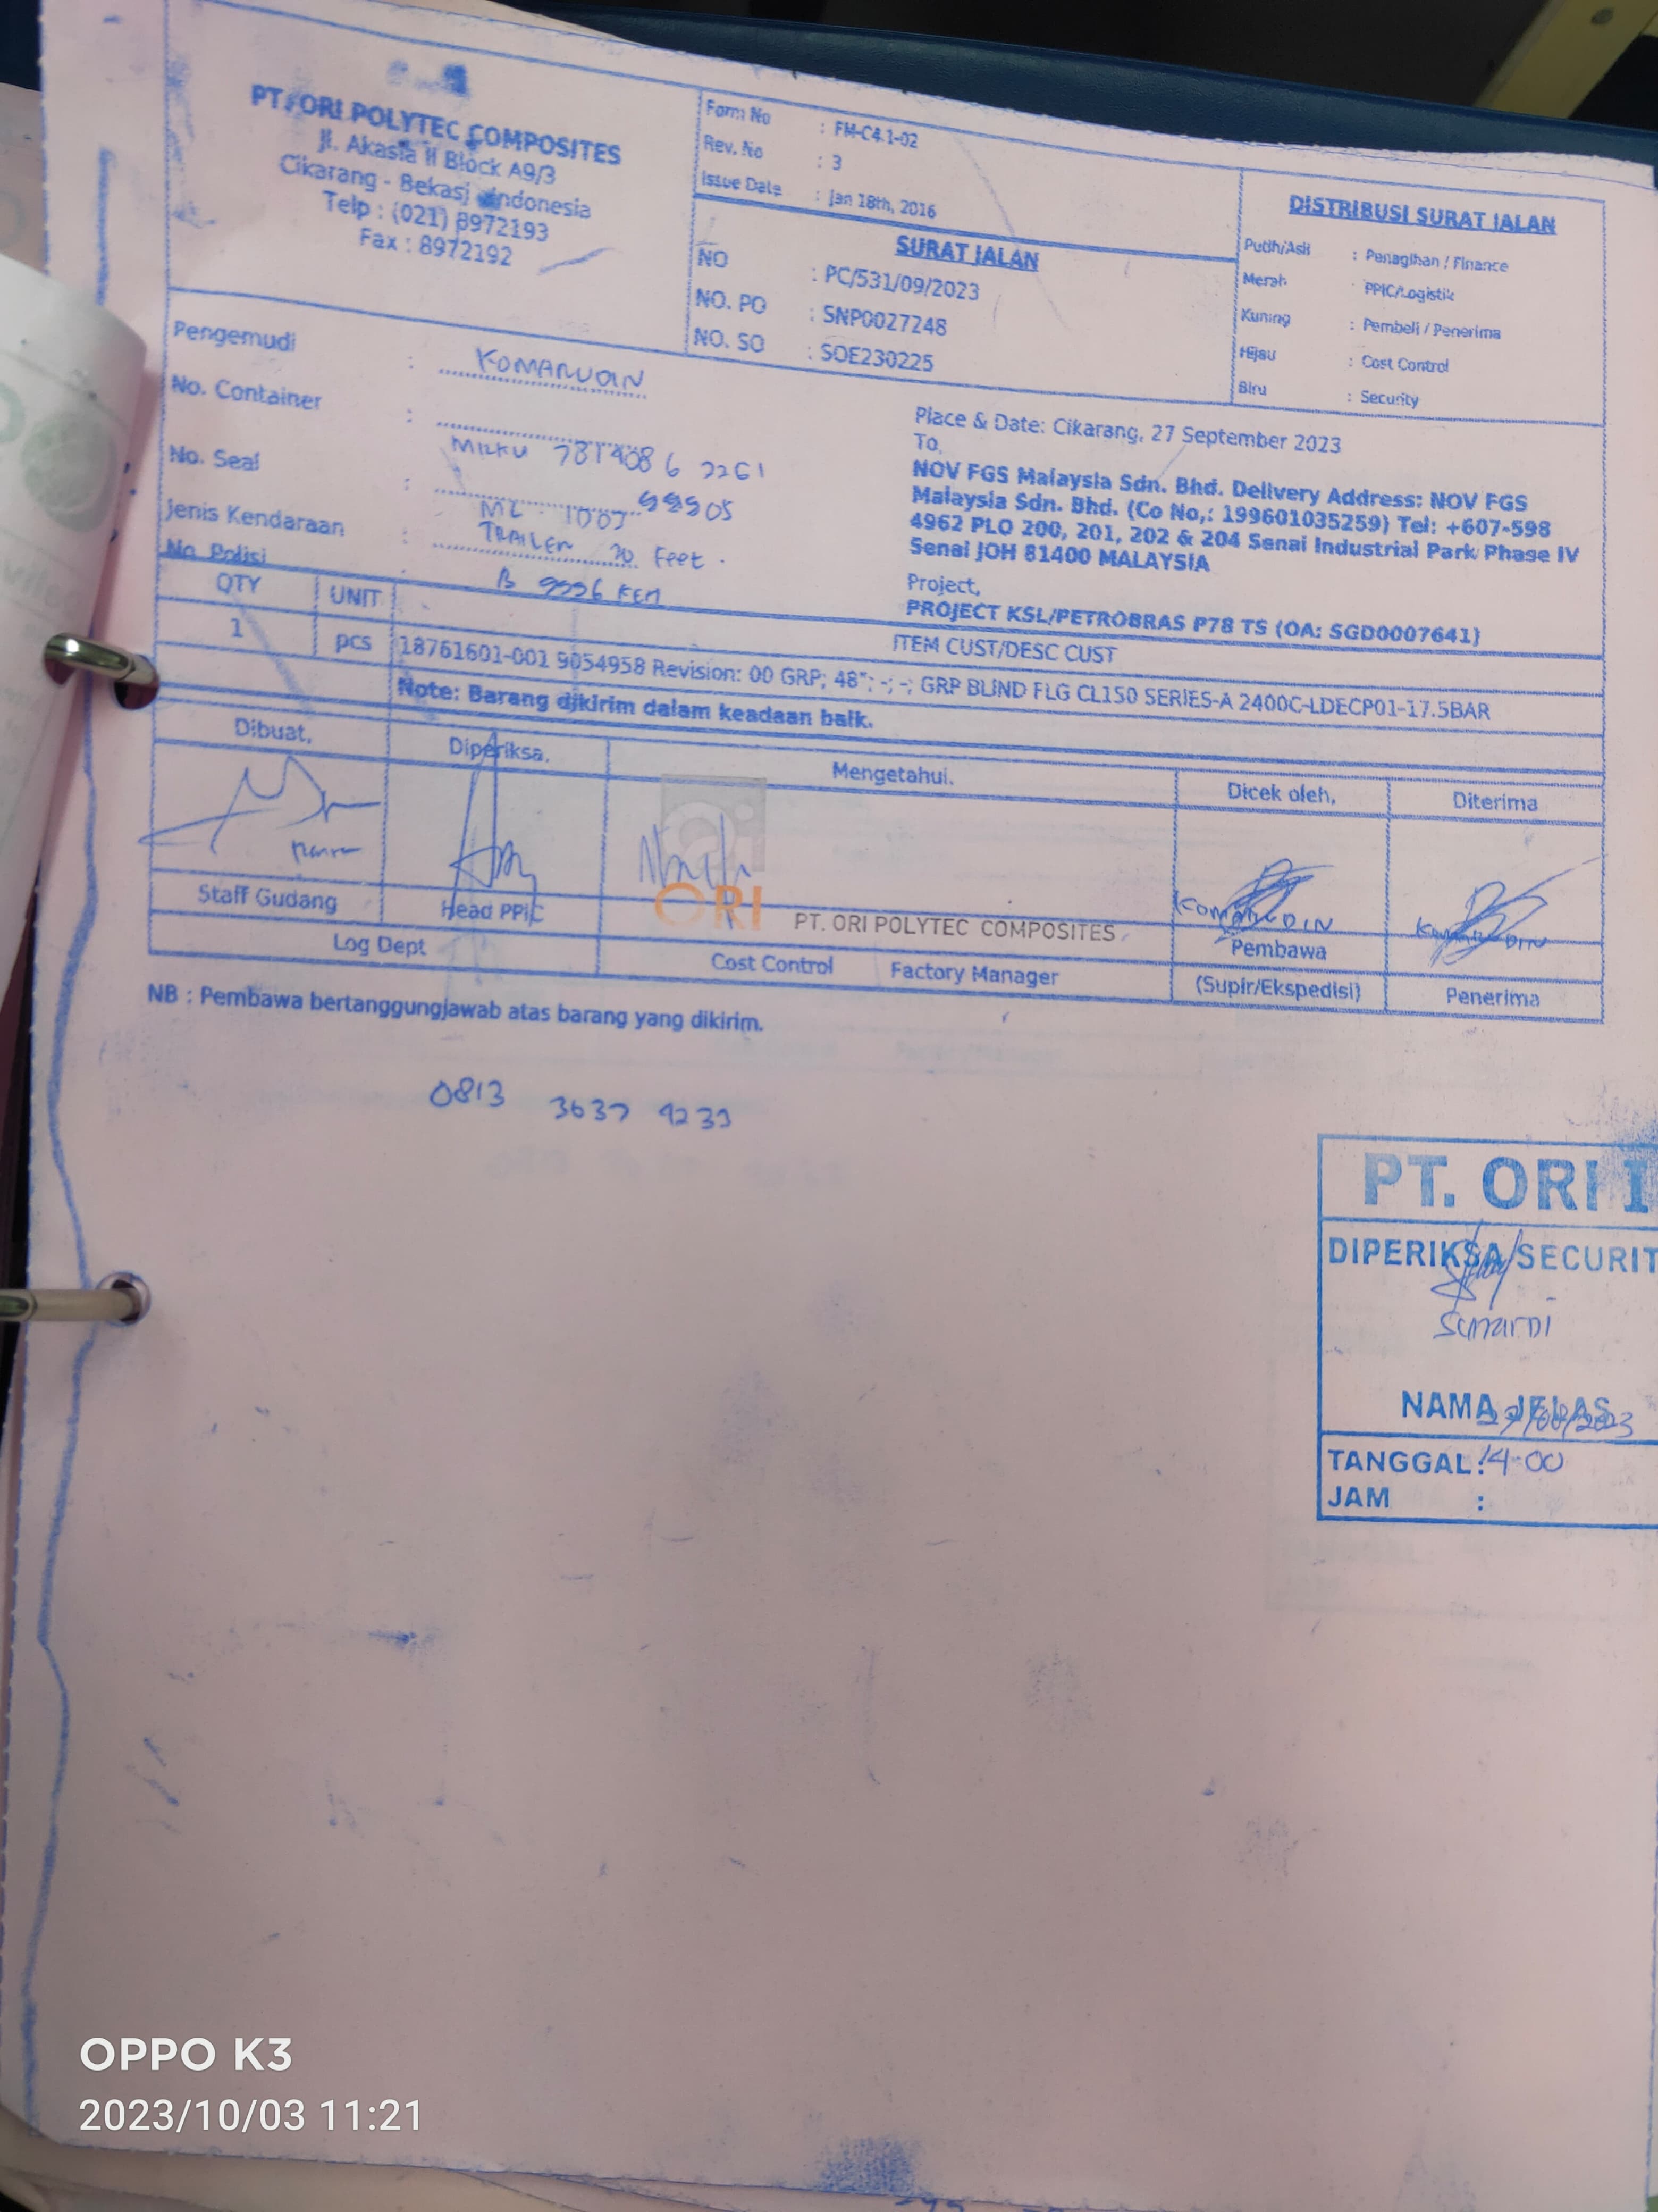 PT. ORI POLYTEC COMPOSITES
Jl. Akasia II Block A9/3
Cikarang - Bekasi Indonesia
Telp : (021) 8972193
Fax : 8972192
Form No : FM-C4.1-02
Rev. No : 3
Issue Date : Jan 18th, 2016
SURAT JALAN
NO : PC/531/09/2023
NO. PO : SNP0027248
NO. SO : SOE230225
DISTRIBUSI SURAT JALAN
Putih/Asli : Penagihan / Finance
Merah PPIC/Logistik
Kuning : Pembeli / Penerima
Hijau : Cost Control
Biru : Security
Pengemudi : KOMARUDIN
No. Container :
No. Seal :
Jenis Kendaraan : TRAILER 20 Feet
No. Polisi
Place & Date: Cikarang, 27 September 2023
To,
NOV FGS Malaysia Sdn. Bhd. Delivery Address: NOV FGS
Malaysia Sdn. Bhd. (Co No,: 199601035259) Tel: +607-598
4962 PLO 200, 201, 202 & 204 Senai Industrial Park Phase IV
Senai JOH 81400 MALAYSIA
Project,
PROJECT KSL/PETROBRAS P78 TS (OA: SGD0007641)
QTY UNIT ITEM CUST/DESC CUST
1 pcs 18761601-001 9054958 Revision: 00 GRP; 48"; -; -; GRP BLIND FLG CL150 SERIES-A 2400C-LDECP01-17.5BAR
Note: Barang dikirim dalam keadaan baik.
Dibuat, Diperiksa, Mengetahui, Dicek oleh, Diterima
ORI PT. ORI POLYTEC COMPOSITES
KOMARUDIN KOMARUDIN
Staff Gudang Head PPIC Pembawa
Log Dept Cost Control Factory Manager (Supir/Ekspedisi) Penerima
NB : Pembawa bertanggungjawab atas barang yang dikirim.
0813 3637
PT. ORI I
DIPERIKSA SECURIT
Sunardi
NAMA JELAS
TANGGAL : 14.00
JAM :
OPPO K3
2023/10/03 11:21